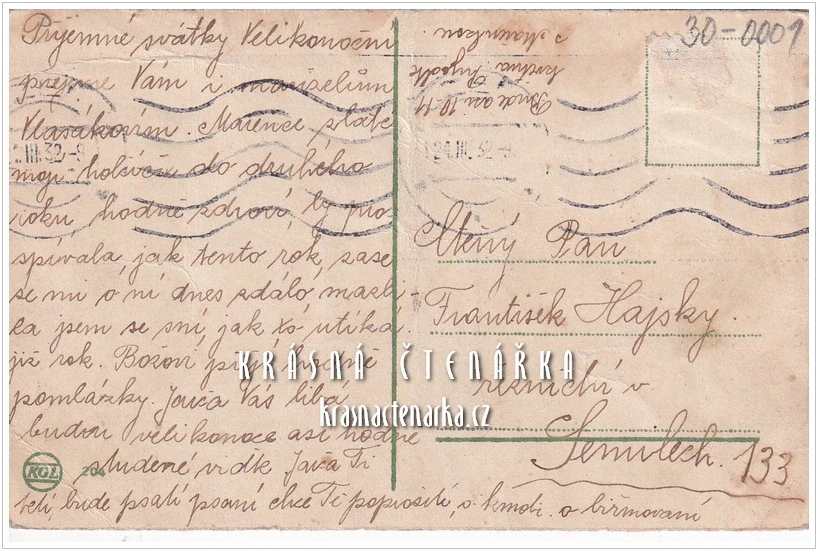 Příjemné svátky Velikonoční
přejeme Vám i manželům
Vlasákovím. Mařence zlaté
moji holčičce do druhého
roku hodně zdraví, by pro-
spívala jak tento rok, zase
se mi o ní dnes zdálo, mazli-
la jsem se s ní, jak to utíká
již rok. Boženi přeji hodně
pomlázky. Jarča Vás líbá
budou velikonoce asi hodně
studené
Ti
bude psáti psaní chce Ti poprositi, o biřmovaní
30-0001
III.32-9
24.III.32-9
Ctěný Pan
František Hajsky.
řezničí v
Semilech. 133
KRÁSNÁ ČTENÁŘKA
krasnactenarka.cz
KGL
204